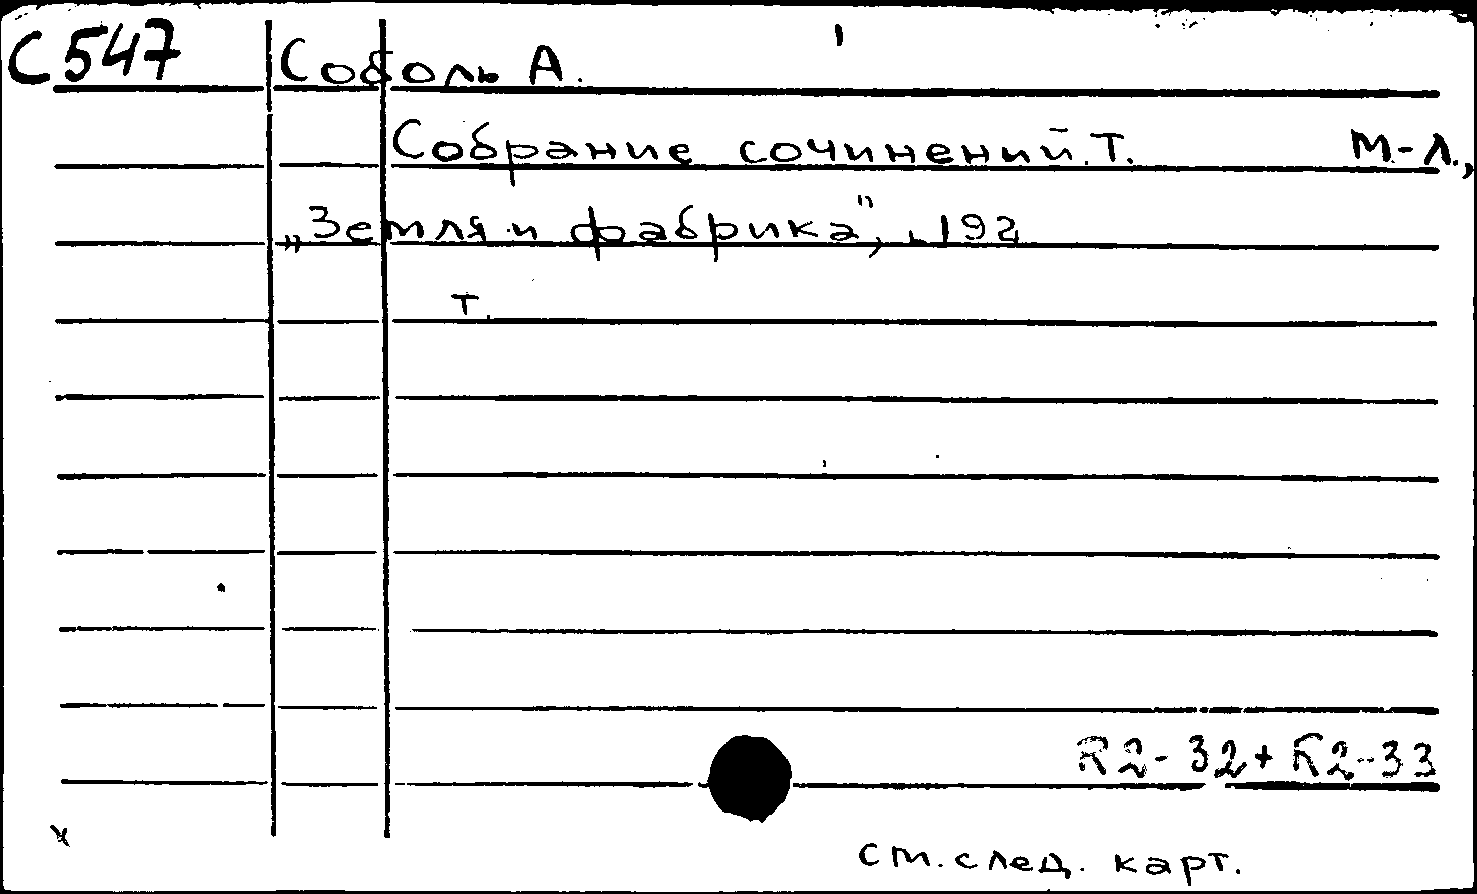 С547 Соболь А.
Собрание сочинений. Т. М.-Л.,
„Земля и фабрика", 192
т.
R2-32+R2-33
см. след. карт.